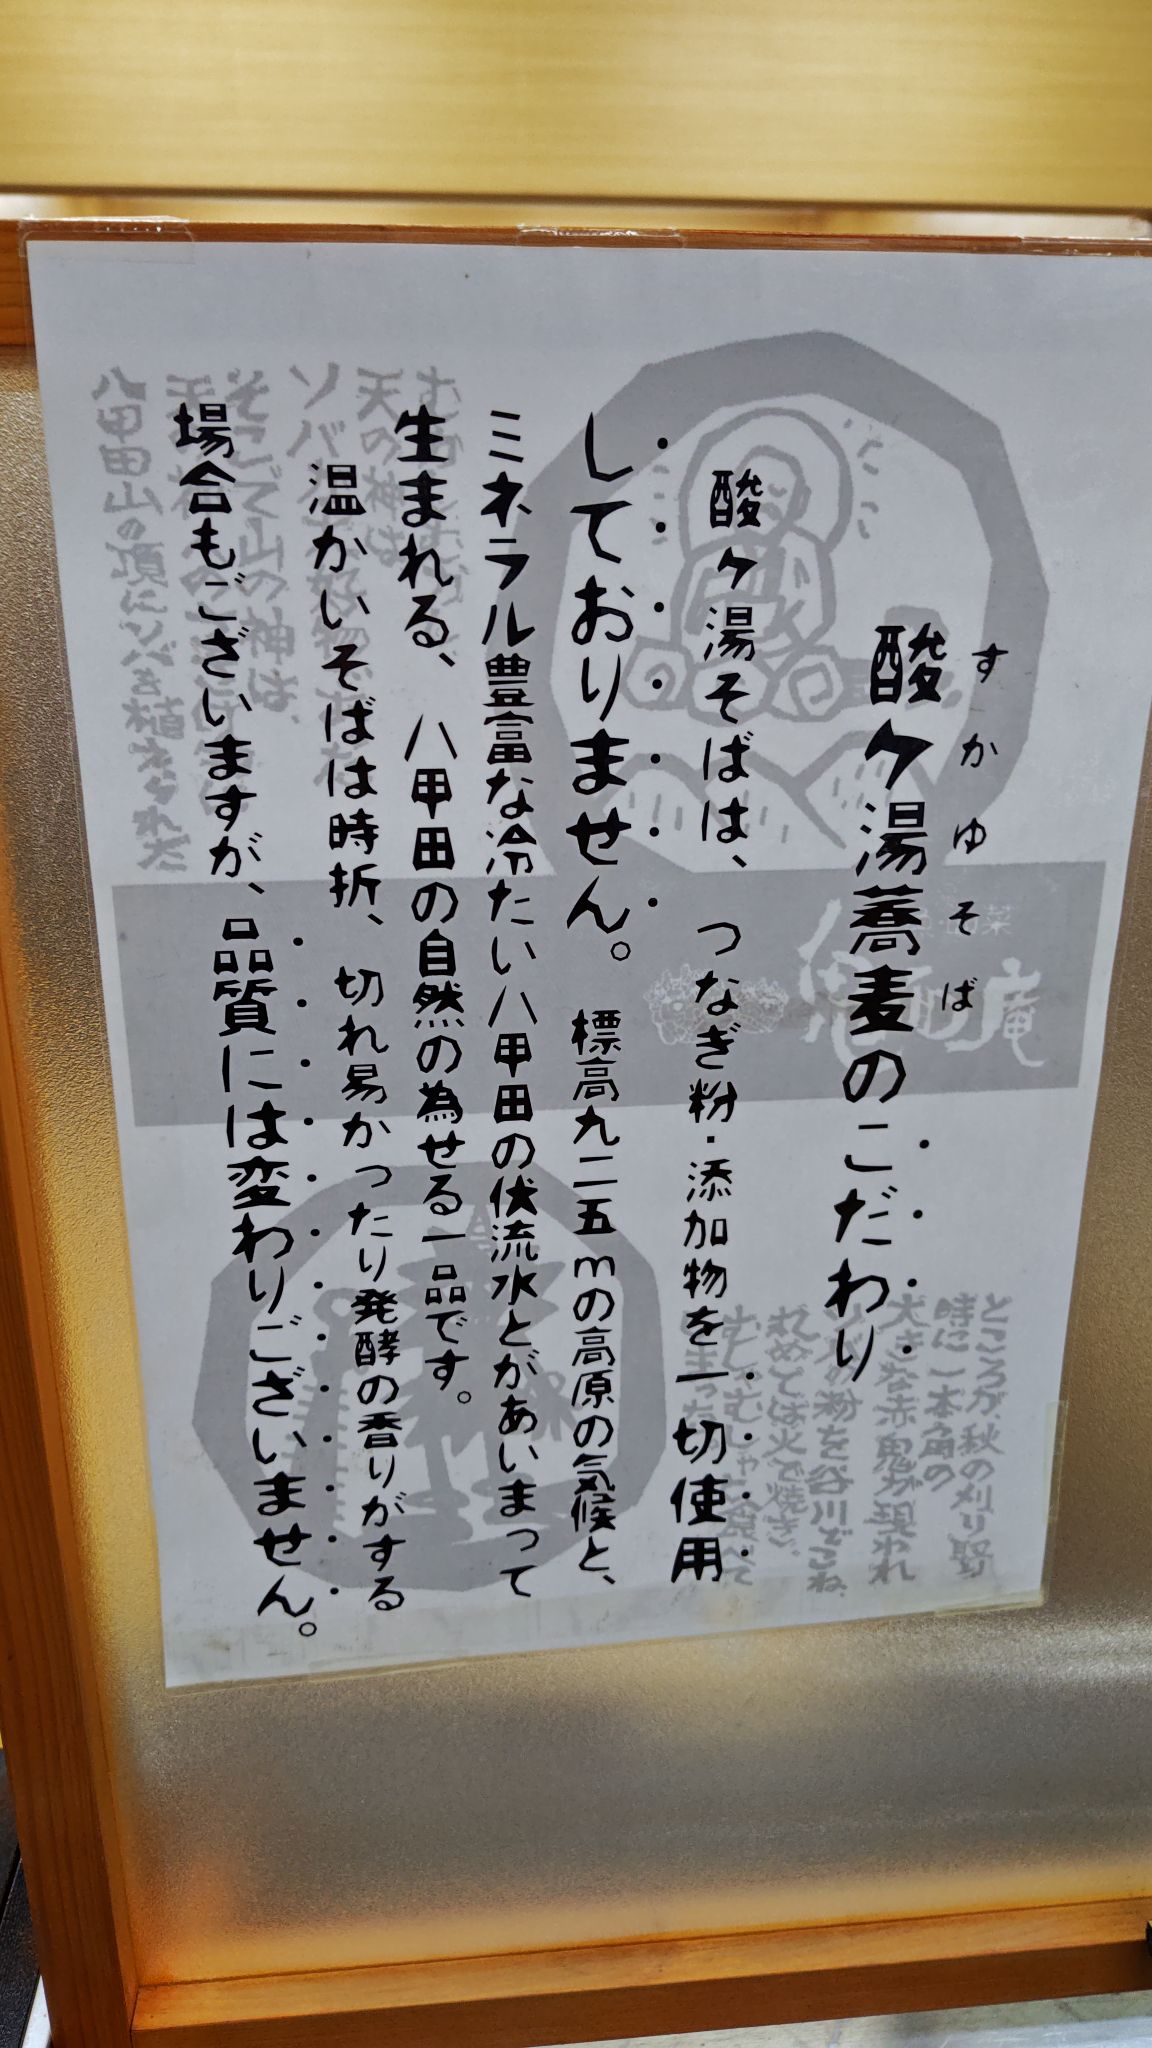 すかゆそば
酸ケ湯蕎麦のこだわり
酸ケ湯そばは、つなぎ粉・添加物を一切使用
しておりません。標高九二五mの高原の気候と、
ミネラル豊富な冷たい八甲田の伏流水とがあいまって
生まれる、八甲田の自然の為せる一品です。
温かいそばは時折、切れ易かったり発酵の香りがする
場合もございますが、品質には変わりございません。
鬼面庵
天の神は
ソバ
そこで山の神は、
八甲田山の頂にソバを植えられた
ところが、秋の刈り取
時に一本角の
大きな赤鬼が現われ
粉を谷川でこね、
れめては火で焼き、
むしゃむしゃ食べて